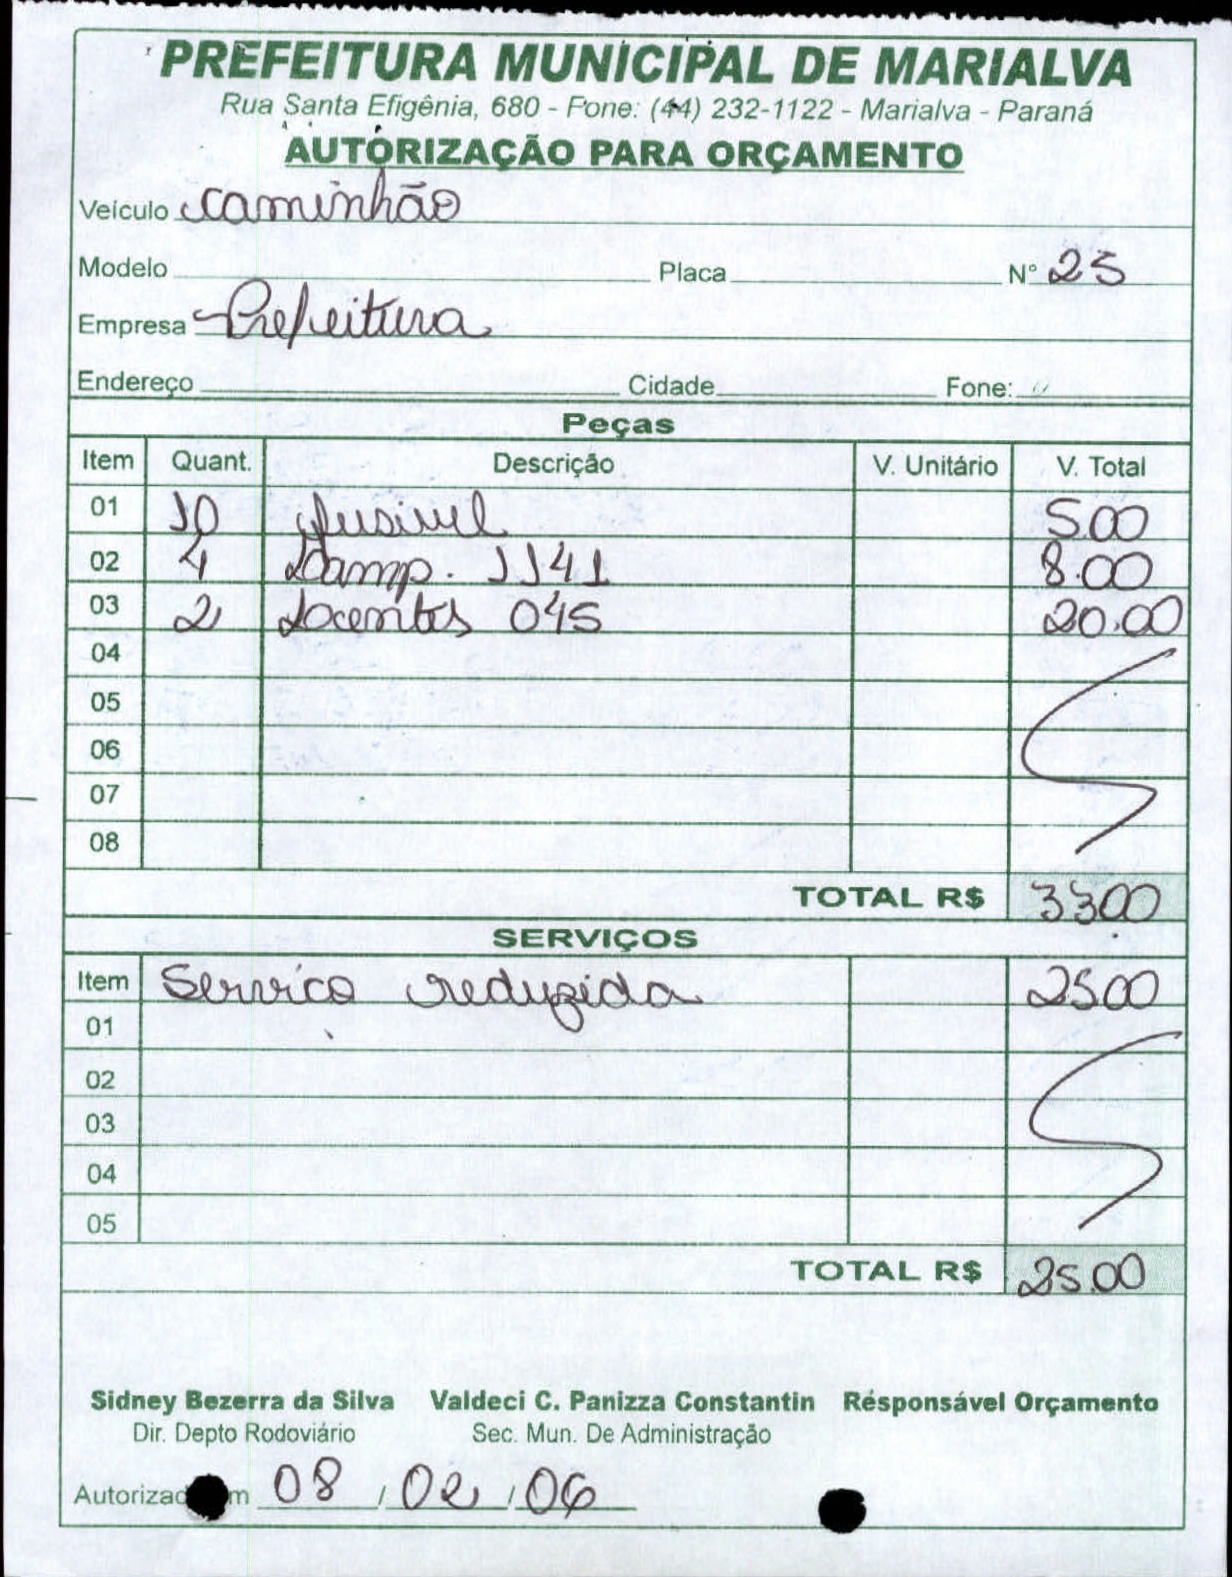 PREFEITURA MUNICIPAL DE MARIALVA
Rua Santa Efigênia, 680 - Fone: (44) 232-1122 - Marialva - Paraná
AUTORIZAÇÃO PARA ORÇAMENTO
Veículo caminhão
Modelo Placa N° 25
Empresa Prefeitura
Endereço Cidade Fone:
Peças
Item Quant. Descrição V. Unitário V. Total
01 10 fusivel 5.00
02 4 Lamp. 1141 8.00
03 2 045 20.00
04
05
06
07
08
TOTAL R$ 3300
SERVIÇOS
Item Servico reduzida 2500
01
02
03
04
05
TOTAL R$ 25.00
Sidney Bezerra da Silva Valdeci C. Panizza Constantin Résponsável Orçamento
Dir. Depto Rodoviário Sec. Mun. De Administração
08 / 02 / 06